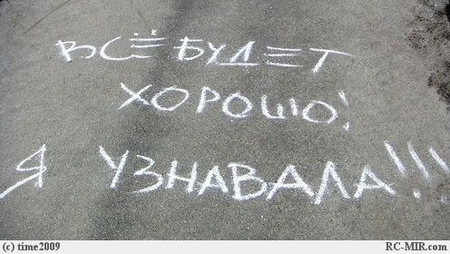 ВСЁ БУДЕТ
ХОРОШО!
Я УЗНАВАЛА!!!
(c) time2009 RC-MIR.com